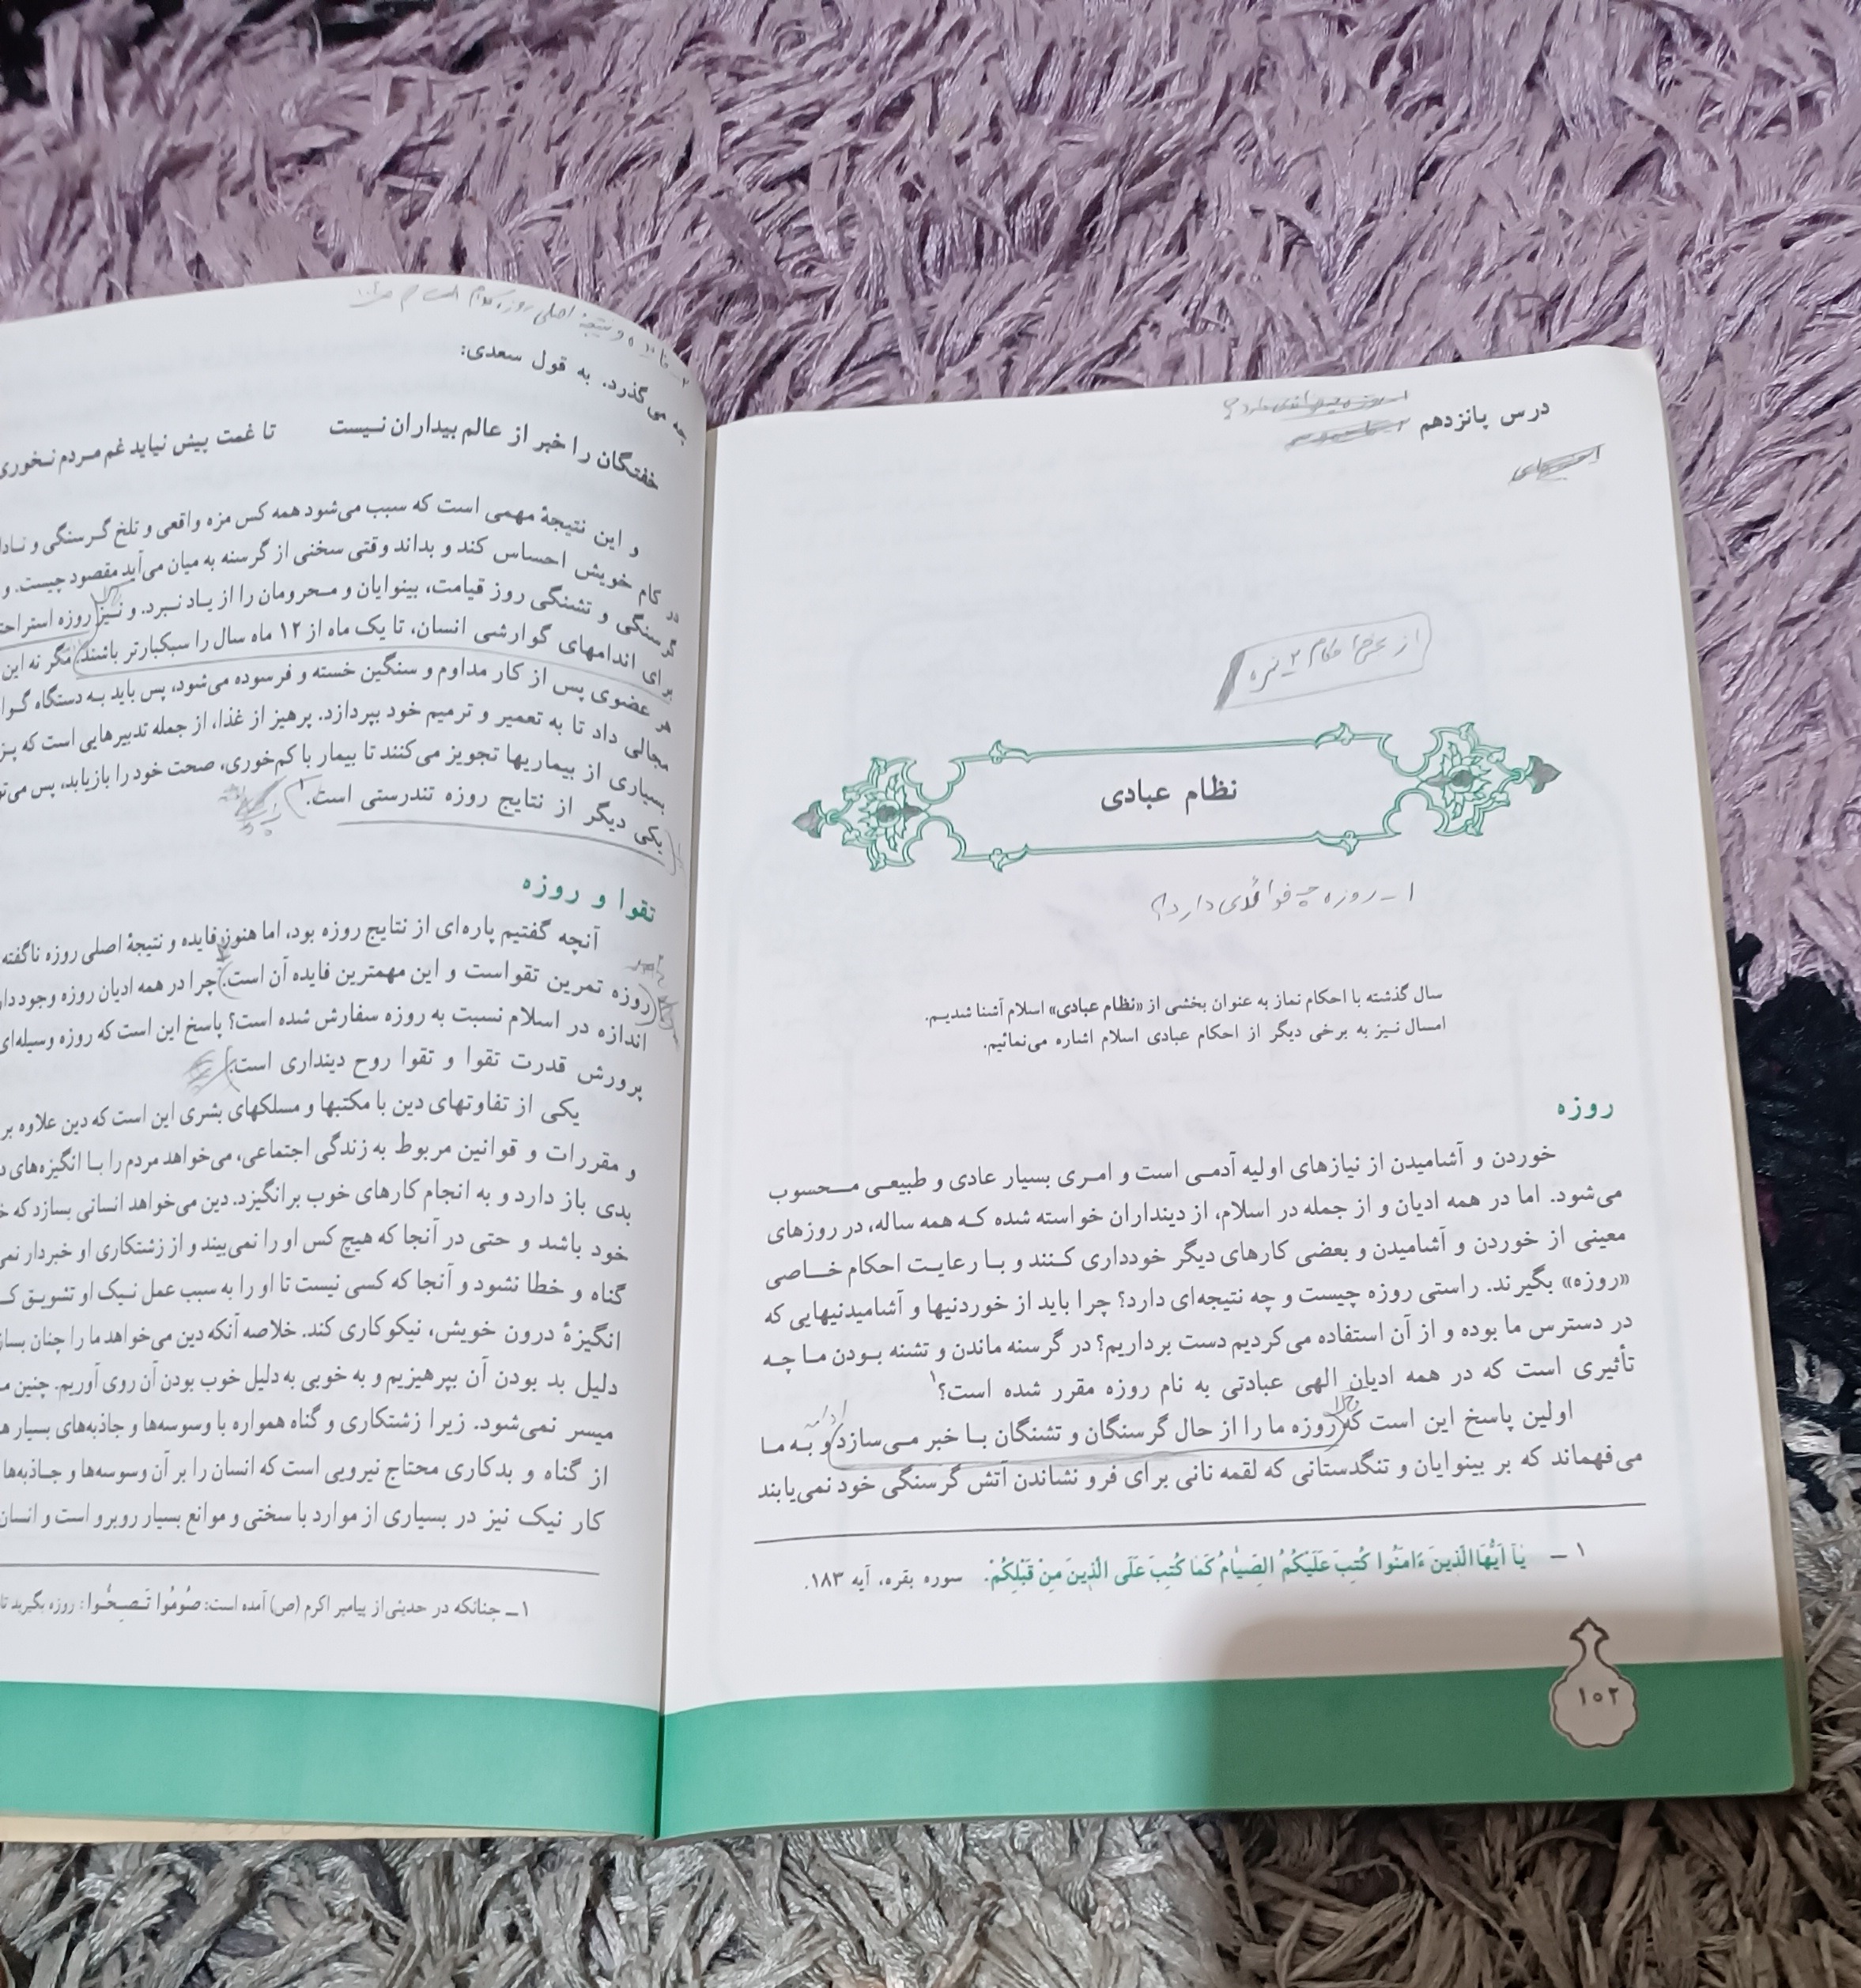 درس پانزدهم
نظام عبادی
۱ـ روزه چه فوائدی دارد؟
سال گذشته با احکام نماز به عنوان بخشی از «نظام عبادی» اسلام آشنا شدیـم.
امسال نـیـز به برخی دیگر از احکام عبادی اسلام اشاره می‌نمائیم.
روزه
خوردن و آشامیدن از نیازهای اولیه آدمـی است و امـری بسیار عادی و طبیعـی مـحسوب
می‌شود. اما در همه ادیان و از جمله در اسلام، از دینداران خواسته شده کـه همه ساله، در روزهای
معینی از خوردن و آشامیدن و بعضی کارهای دیگر خودداری کـنند و بـا رعایـت احکام خـاصی
«روزه» بگیرند. راستی روزه چیست و چه نتیجه‌ای دارد؟ چرا باید از خوردنیها و آشامیدنیهایی که
در دسترس ما بوده و از آن استفاده می‌کردیم دست برداریم؟ در گرسنه ماندن و تشنه بـودن مـا چـه
تأثیری است که در همه ادیان الهی عبادتی به نام روزه مقرر شده است؟۱
ادامه
اولین پاسخ این است که روزه ما را از حال گرسنگان و تشنگان بـا خبر مـی‌سازد و بـه مـا
می‌فهماند که بر بینوایان و تنگدستانی که لقمه نانی برای فرو نشاندن آتش گرسنگی خود نمی‌یابند
۱ ـ یٰا اَیُّهَا الَّذینَ ءَامَنُوا کُتِبَ عَلَیکُمُ الصِّیٰامُ کَمٰا کُتِبَ عَلَی الَّذینَ مِنْ قَبْلِکُمْ. سوره بقره، آیه ۱۸۳.
۱۰۲
۲ـ فایده و نتیجهٔ اصلی روزه کدام است
چه می‌گذرد. به قول سعدی:
خفتگان را خبر از عالم بیداران نـیست تا غمت پیش نیاید غم مـردم نـخوری
و این نتیجهٔ مهمی است که سبب می‌شود همه کس مزه واقعی و تلخ گـرسنگی و
در کام خویش احساس کند و بداند وقتی سخنی از گرسنه به میان می‌آید مقصود چیست. و
گرسنگی و تشنگی روز قیامت، بینوایان و مـحرومان را از یـاد نـبرد. و نـیز روزه
برای اندامهای گوارشی انسان، تا یک ماه از ۱۲ ماه سال را سبکبارتر باشند. مگر نه این
هر عضوی پس از کار مداوم و سنگین خسته و فرسوده می‌شود، پس باید بـه دستگاه
مجالی داد تا به تعمیر و ترمیم خود بپردازد. پرهیز از غذا، از جمله تدبیرهایی است که
بسیاری از بیماریها تجویز می‌کنند تا بیمار با کم‌خوری، صحت خود را بازیابد، پس
یکی دیگر از نتایج روزه تندرستی است.۱
تقوا و روزه
آنچه گفتیم پاره‌ای از نتایج روزه بود، اما هنوز فایده و نتیجهٔ اصلی روزه ناگفته
روزه تمرین تقواست و این مهمترین فایده آن است. چرا در همه ادیان روزه وجود
اندازه در اسلام نسبت به روزه سفارش شده است؟ پاسخ این است که روزه وسیله‌ای
پرورش قدرت تقوا و تقوا روح دینداری است.
یکی از تفاوتهای دین با مکتبها و مسلکهای بشری این است که دین علاوه بر
و مقررات و قوانین مربوط به زندگی اجتماعی، می‌خواهد مردم را بـا انگیزه‌های
بدی باز دارد و به انجام کارهای خوب برانگیزد. دین می‌خواهد انسانی بسازد که
خود باشد و حتی در آنجا که هیچ کس او را نمی‌بیند و از زشتکاری او خبردار
گناه و خطا نشود و آنجا که کسی نیست تا او را به سبب عمل نـیک او تشویـق
انگیزهٔ درون خویش، نیکوکاری کند. خلاصه آنکه دین می‌خواهد ما را چنان
دلیل بد بودن آن بپرهیزیم و به خوبی به دلیل خوب بودن آن روی آوریم. چنین
میسر نمی‌شود. زیرا زشتکاری و گناه همواره با وسوسه‌ها و جاذبه‌های بسیار
از گناه و بدکاری محتاج نیرویی است که انسان را بر آن وسوسه‌ها و جـاذبه‌ها
کار نیک نیز در بسیاری از موارد با سختی و موانع بسیار روبرو است و انسان
۱ـ چنانکه در حدیثی از پیامبر اکرم (ص) آمده است: صُومُوا تَـصِحُّـوا : روزه بگیرید